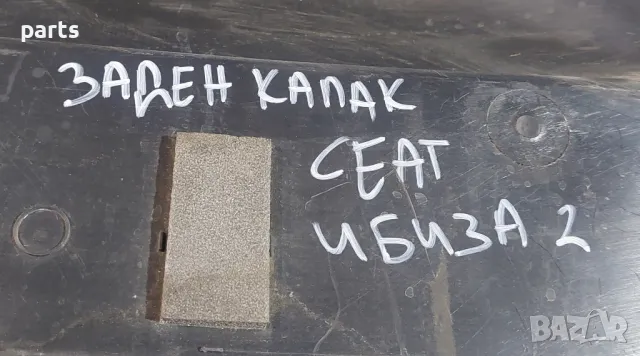 parts
ЗАДЕН КАПАК
СЕАТ
ИБИЗА 2
BAZAR